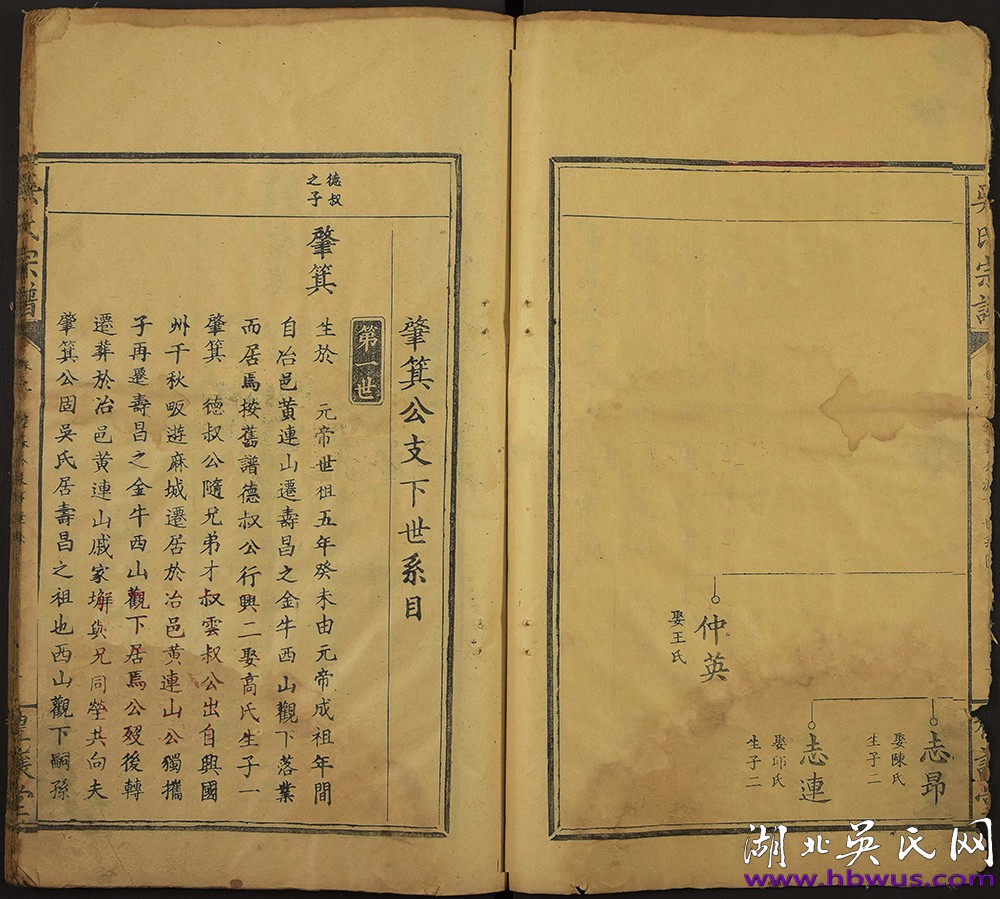 吳氏宗譜
志昂
娶陳氏
生子二
志連
娶邱氏
生子二
仲英
娶王氏
肇箕公支下世系目
第一世
德叔
之子
肇箕
生於 元帝世祖五年癸未由元帝成祖年間
自冶邑黄連山遷壽昌之金牛西山觀下落業
而居焉按舊譜德叔公行興二娶高氏生子一
肇箕 德叔公隨兄弟才叔雲叔公出自興國
州千秋畈遊麻城遷居於冶邑黄連山公獨攜
子再遷壽昌之金牛西山觀下居焉公歿後轉
遷葬於冶邑黄連山戚家塀與兄同塋共向夫
肇箕公固吳氏居壽昌之祖也西山觀下嗣孫
氏宗譜
湖北吳氏网
www.hbwus.com